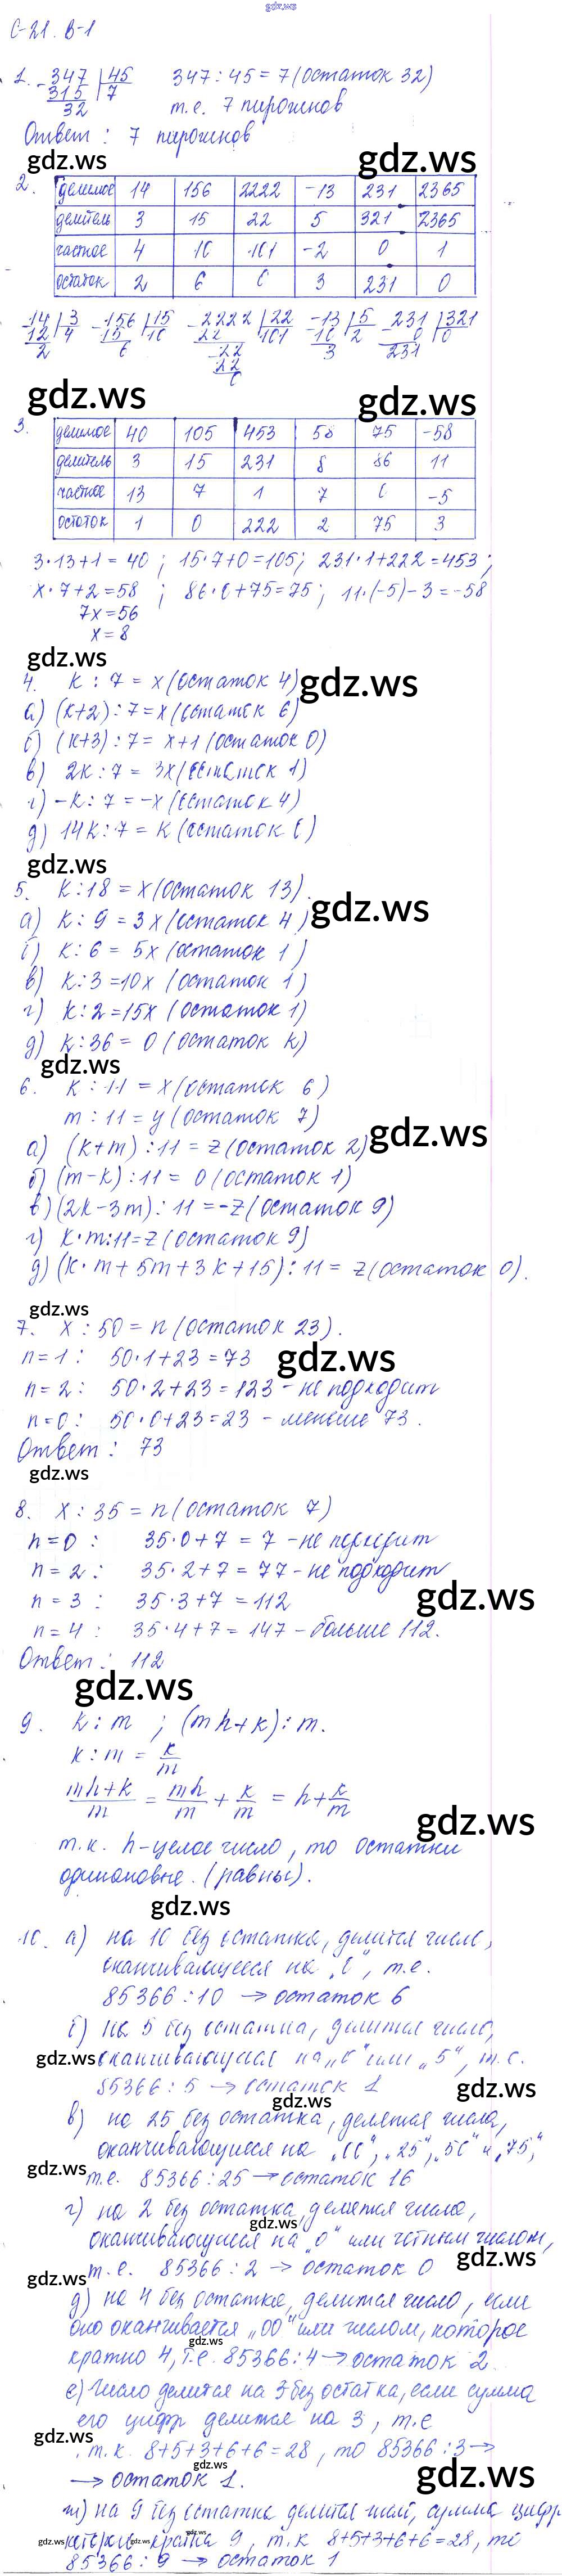 gdz.ws
С-21. В-1
1. 347 | 45   347 : 45 = 7 (остаток 32)
315 | 7   т.е. 7 пирожков
32
Ответ : 7 пирожков
gdz.ws gdz.ws
2. делимое 14 156 2222 -13 231 2365
делитель 3 15 22 5 321 2365
частное 4 10 101 -2 0 1
остаток 2 6 0 3 231 0
14 | 3   156 | 15   2222 | 22   -13 | 5   231 | 321
12 | 4   15 | 10   22 | 101   10 | 2   0 | 0
2   6   22   3   231
22
0
gdz.ws gdz.ws
3. делимое 40 105 453 58 75 -58
делитель 3 15 231 8 86 11
частное 13 7 1 7 0 -5
остаток 1 0 222 2 75 3
3·13+1=40 ; 15·7+0=105; 231·1+222=453;
x·7+2=58 ; 86·0+75=75; 11·(-5)-3=-58
7x=56
x=8
gdz.ws
4. k : 7 = x (остаток 4) gdz.ws
а) (k+2) : 7 = x (остаток 6)
б) (k+3) : 7 = x+1 (остаток 0)
в) 2k : 7 = 3x (остаток 1)
г) -k : 7 = -x (остаток 4)
д) 14k : 7 = k (остаток 0)
gdz.ws
5. k : 18 = x (остаток 13) gdz.ws
а) k : 9 = 3x (остаток 4)
б) k : 6 = 5x (остаток 1)
в) k : 3 = 10x (остаток 1)
г) k : 2 = 15x (остаток 1)
д) k : 36 = 0 (остаток k)
gdz.ws
6. k : 11 = x (остаток 6)
m : 11 = y (остаток 7) gdz.ws
а) (k+m) : 11 = z (остаток 2)
б) (m-k) : 11 = 0 (остаток 1)
в) (2k-3m) : 11 = -z (остаток 9)
г) k·m : 11 = z (остаток 9)
д) (k·m+5m+3k+15) : 11 = z (остаток 0).
gdz.ws
7. x : 50 = n (остаток 23).
n=1 : 50·1+23=73 gdz.ws
n=2 : 50·2+23=123 - не подходит
n=0 : 50·0+23=23 - меньше 73.
Ответ : 73
gdz.ws
8. x : 35 = n (остаток 7)
n=0 : 35·0+7=7 - не подходит
n=2 : 35·2+7=77 - не подходит
n=3 : 35·3+7=112 gdz.ws
n=4 : 35·4+7=147 - больше 112.
Ответ : 112
gdz.ws
9. k : m ; (mn+k) : m.
k : m = k/m
(mn+k)/m = mn/m + k/m = n + k/m
gdz.ws
т.к. n - целое число, то остатки
одинаковые. (равны).
gdz.ws
10. а) на 10 без остатка, делится число,
оканчивающееся на „0“, т.е.
85366 : 10 → остаток 6
б) на 5 без остатка, делится число,
gdz.ws оканчивающееся на „0“ или „5“, т.е.
85366 : 5 → остаток 1 gdz.ws
gdz.ws
в) на 25 без остатка, делятся числа,
оканчивающиеся на „00“, „25“, „50“ и „75“,
gdz.ws т.е. 85366 : 25 → остаток 16
г) на 2 без остатка, делятся числа,
gdz.ws
оканчивающиеся на „0“ или чётным числом,
gdz.ws
т.е. 85366 : 2 → остаток 0
gdz.ws
д) на 4 без остатка, делится число, если
оно оканчивается „00“ или числом, которое
gdz.ws
кратно 4, т.е. 85366 : 4 → остаток 2.
е) Число делится на 3 без остатка, если сумма
его цифр делится на 3, т.е
gdz.ws
т.к. 8+5+3+6+6=28, то 85366 : 3 →
→ остаток 1. gdz.ws
ж) на 9 без остатка делится число, сумма цифр
gdz.ws gdz.ws кратна 9, т.к 8+5+3+6+6=28, то
85366 : 9 → остаток 1